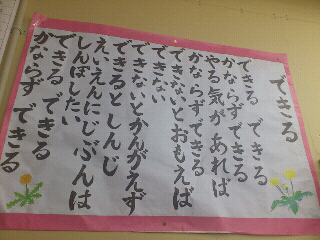 できる
できる できる
かならず できる
やる気が あれば
かならず できる
できないと おもえば
できない
できないと かんがえず
できると しんじ
えいえんに じぶんは
しんぼしたい
できる できる
かならず できる